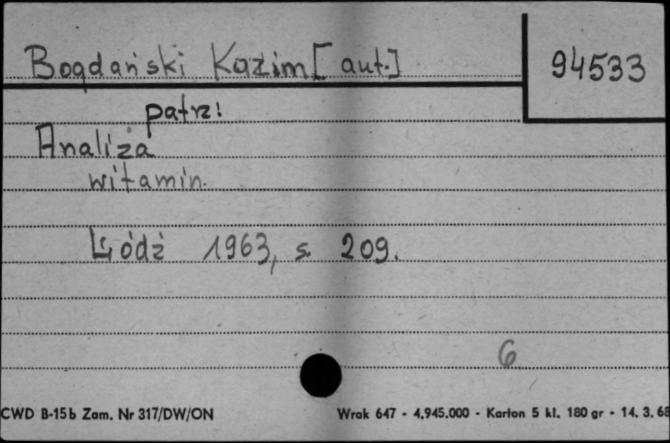 Bogdański Kazim[aut.]
94533
patrz!
Analiza
witamin.
Łódź 1963, s. 209.
6
CWD B-15b Zam. Nr 317/DW/ON
Wrak 647 - 4.945.000 - Karton 5 kl. 180 gr - 14. 3. 68